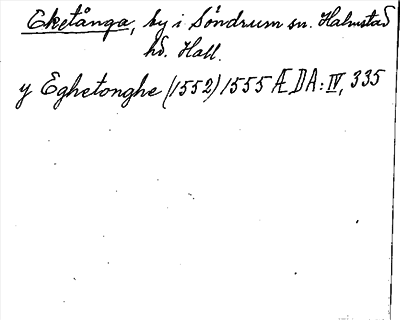 Eketånga, by i Söndrum sn. Halmstad
hd. Hall.
y Eghetonghe (1552) 1555 ÆDA: IV, 335